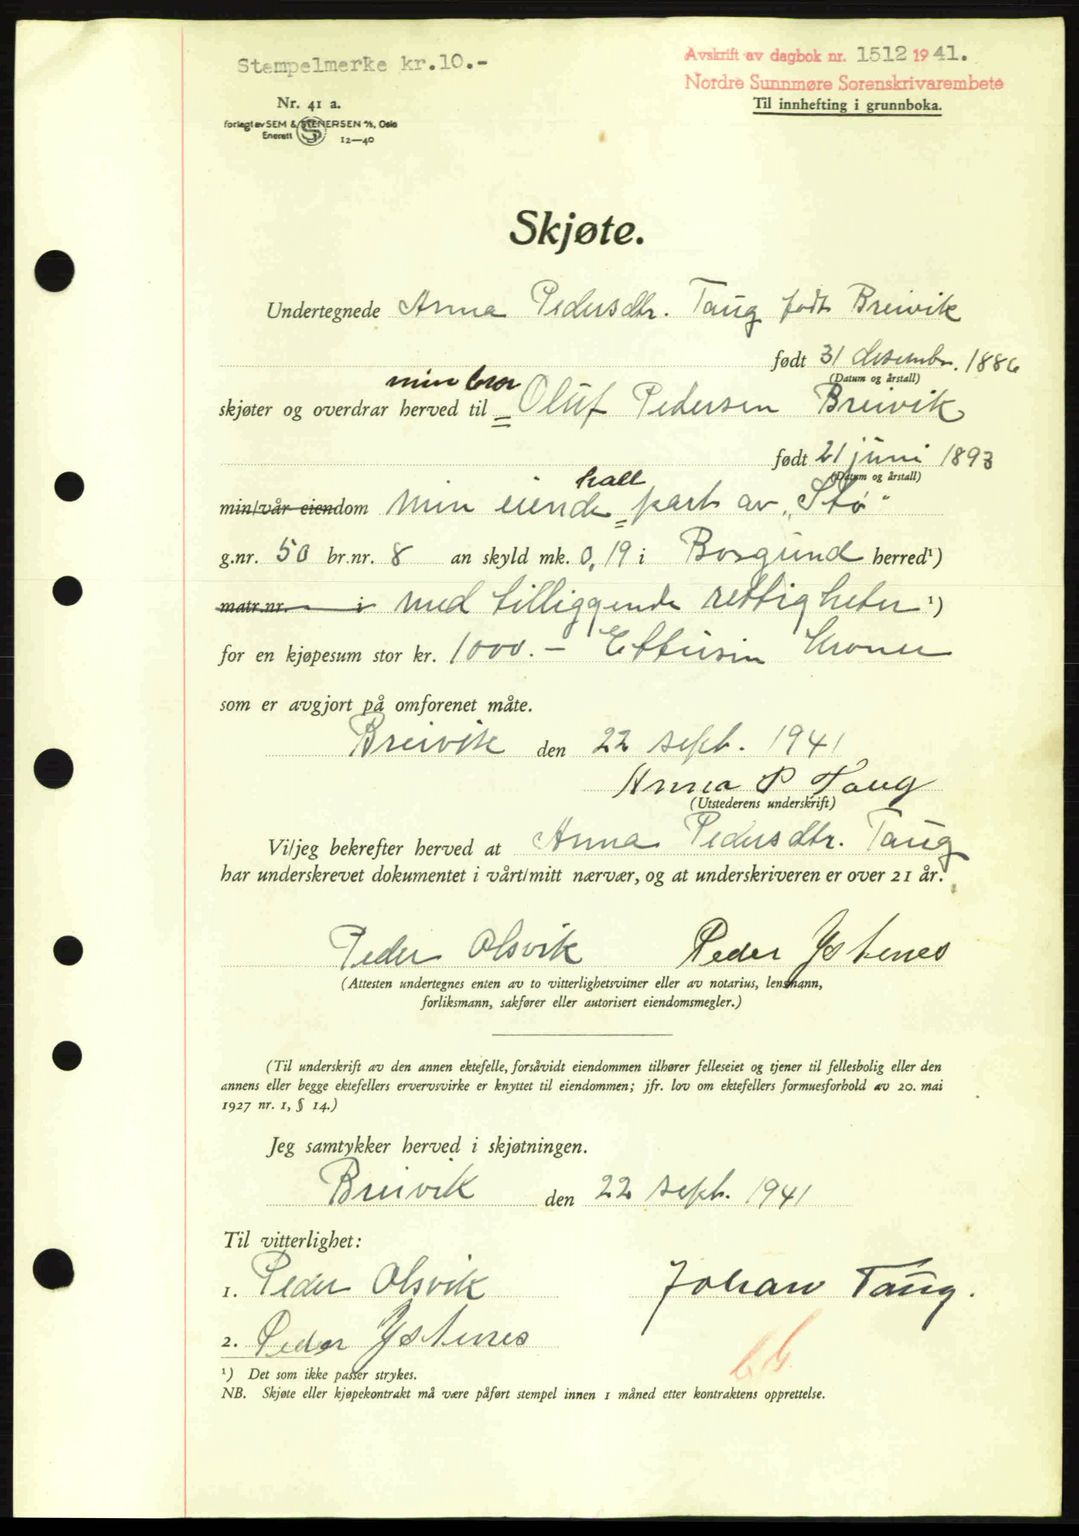 Stempelmerke kr.10.-
Avskrift av dagbok nr. 1512 1941.
Nordre Sunnmøre Sorenskrivarembete
Til innhefting i grunnboka.
Nr. 41 a.
forlagt av SEM & STENERSEN A/S, Oslo
Enerett S 12—40
Skjøte.
Undertegnede Anna Pedersdtr. Taug født Breivik
født 31 desembr. 1886
(Datum og årstall)
min bror
skjøter og overdrar herved til = Oluf Pedersen Breivik
født 21 juni 1893
(Datum og årstall)
halv
min/vår eiendom min eiende = part av „Stø"
g.nr. 50 br.nr. 8 an skyld mk. 0,19 i Borgund herred¹)
matr.nr. i med tilliggende rettigheter ¹)
for en kjøpesum stor kr. 1000.— Ettusin Kroner
som er avgjort på omforenet måte.
Breivik den 22 sept. 1941
Anna P Taug
(Utstederens underskrift)
Vi/jeg bekrefter herved at Anna Pedersdtr. Taug
har underskrevet dokumentet i vårt/mitt nærvær, og at underskriveren er over 21 år.
Peder Olsvik Peder Ystenes
(Attesten undertegnes enten av to vitterlighetsvitner eller av notarius, lensmann,
forliksmann, sakfører eller autorisert eiendomsmegler.)
(Til underskrift av den annen ektefelle, forsåvidt eiendommen tilhører felleseiet og tjener til fellesbolig eller den
annens eller begge ektefellers ervervsvirke er knyttet til eiendommen; jfr. lov om ektefellers formuesforhold av 20. mai
1927 nr. 1, § 14.)
Jeg samtykker herved i skjøtningen.
Breivik den 22 sept. 1941
Til vitterlighet:
1. Peder Olsvik
Johan Taug.
2. Peder Ystenes
¹) Det som ikke passer strykes.
NB. Skjøte eller kjøpekontrakt må være påført stempel innen 1 måned etter kontraktens opprettelse.